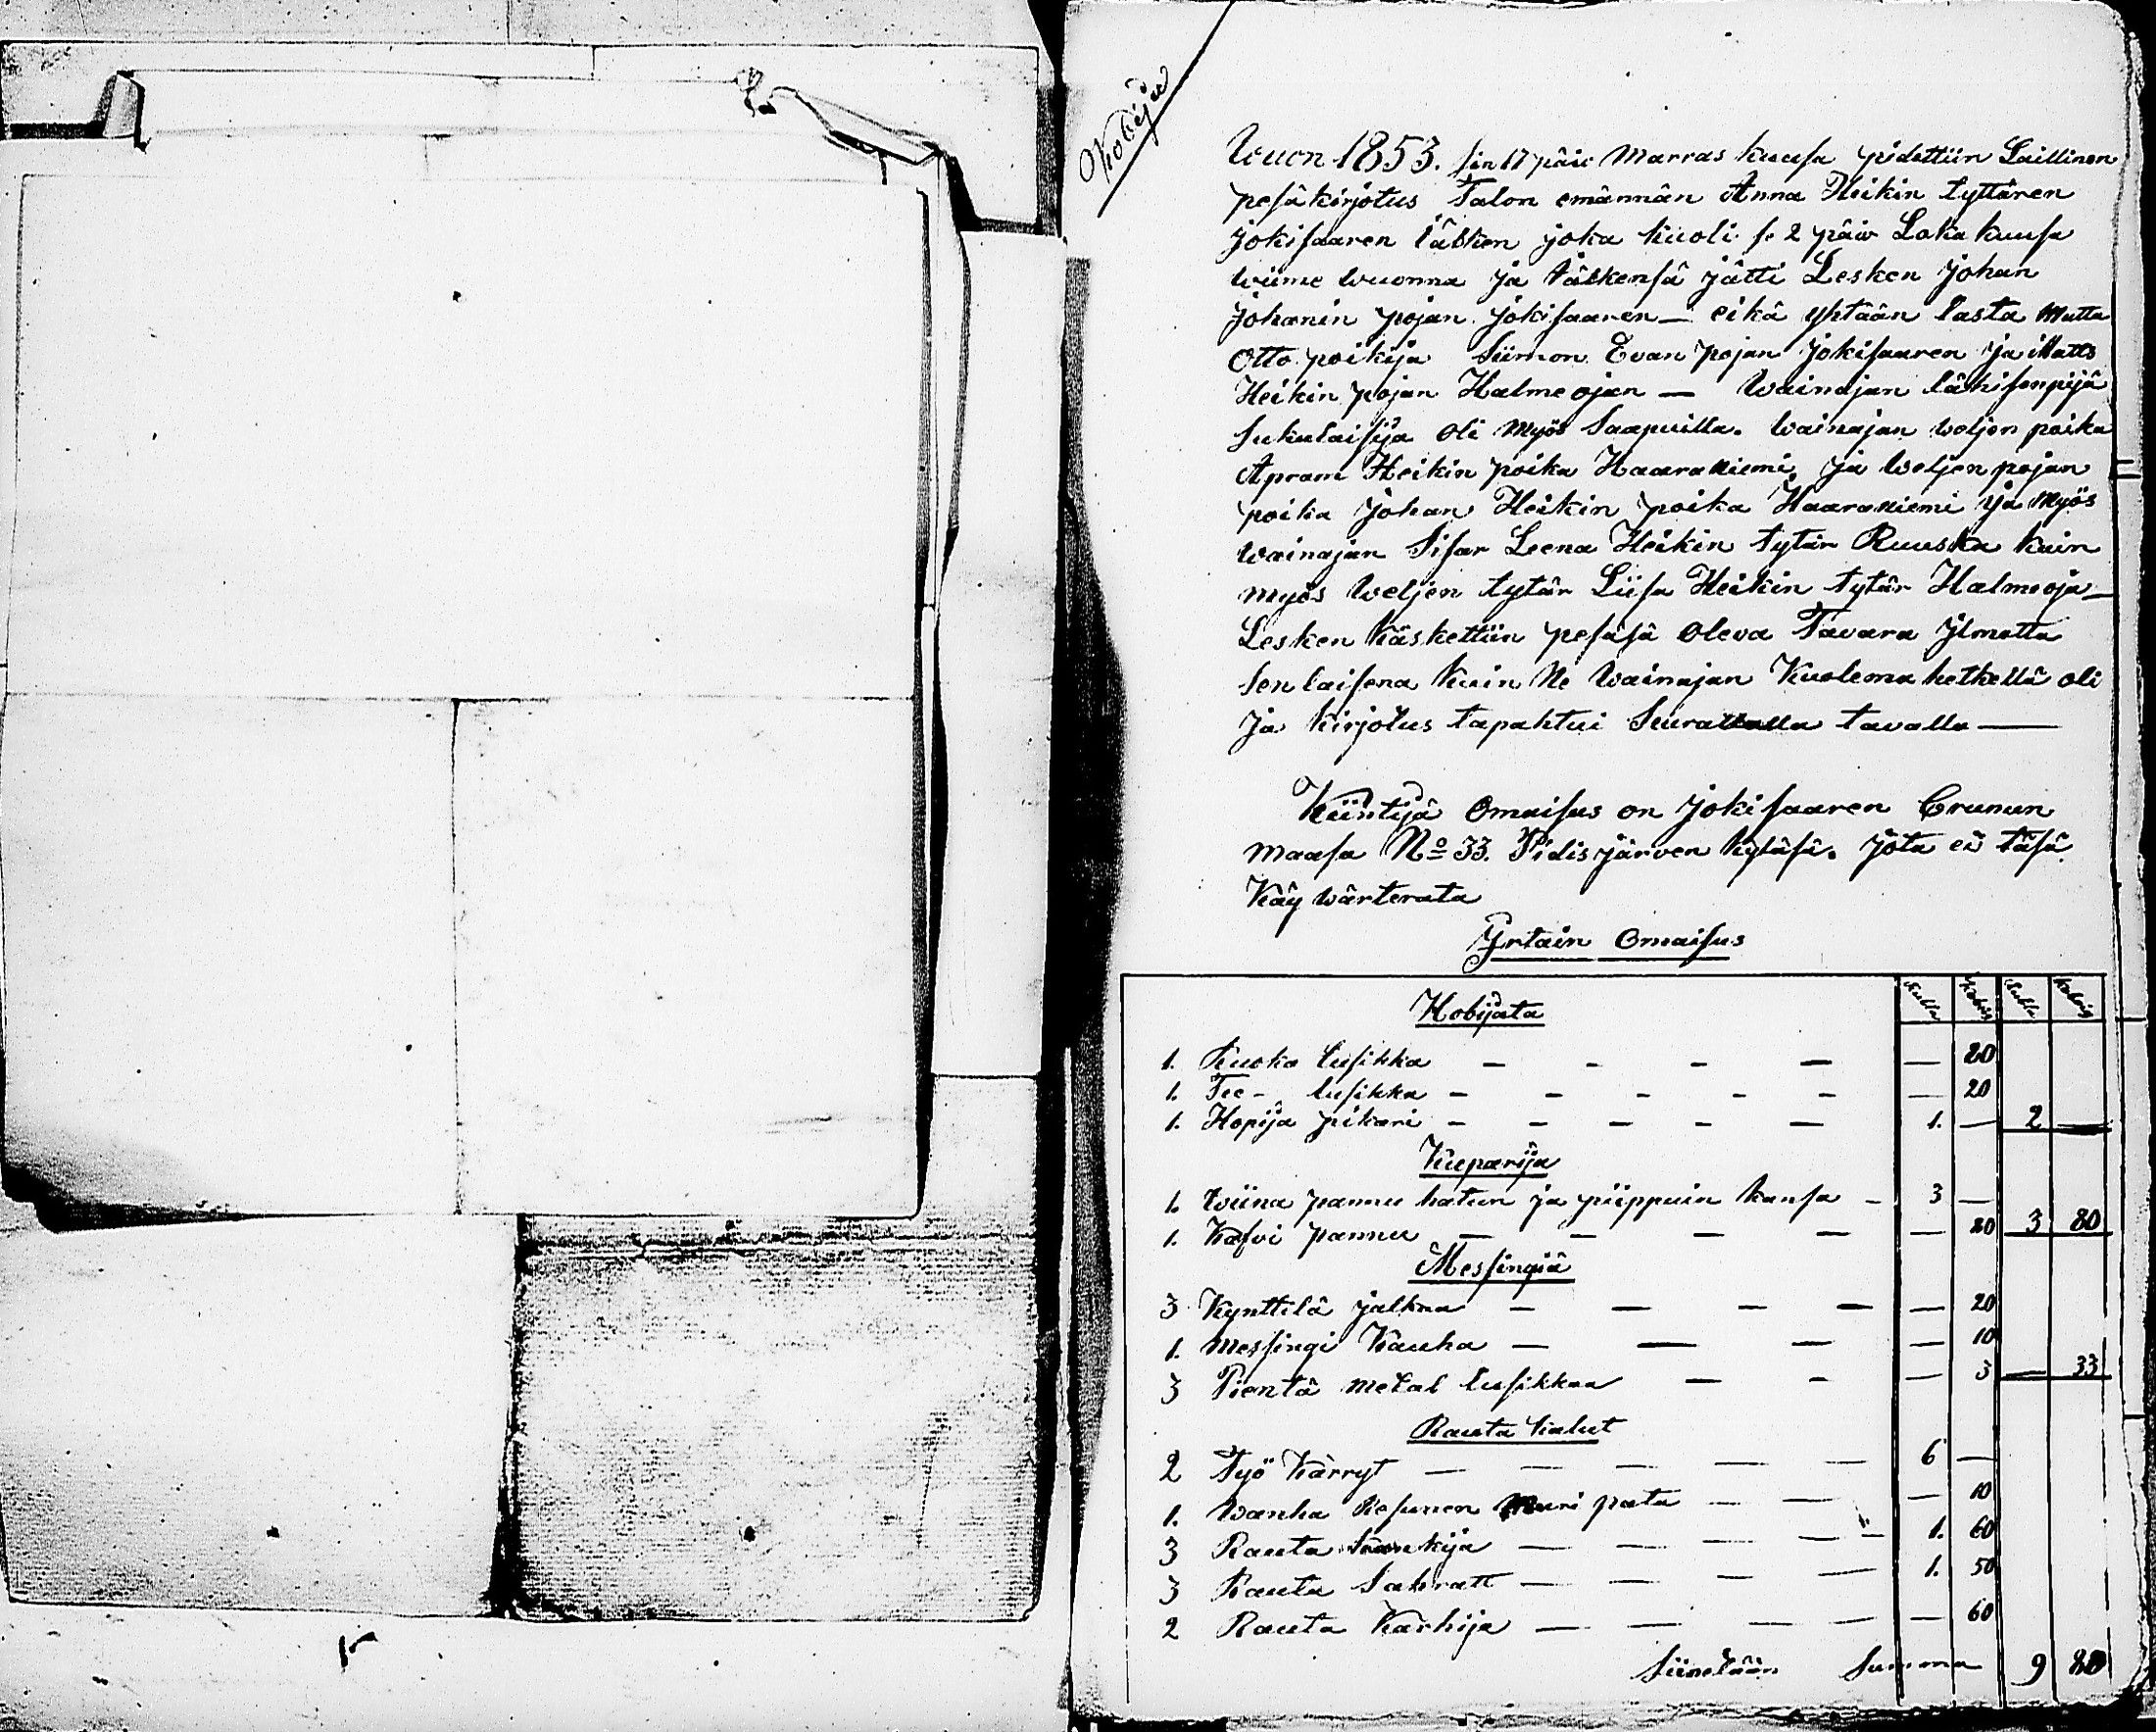 Kobija
Wuon 1853. sin 17 päiv Marras kuusa pidettiin Laillinen
pesäkirjotus Talon emännän Anna Heikin tyttären
Jokisaaren jälken joka kuoli se 2 päiv Lokakuusa
wiime wuonna ja jälkensä jätti Lesken Johan
Johanin pojan Jokisaaren — eikä yhtään lasta Mutta
Otto poikija Siimon Evan pojan Jokisaaren ja Matts
Heikin pojan Halmeojan — Wainajan lähisenpijä
Sukulaisija oli Myös Saapuilla. Wainajan weljen poika
Apram Heikin poika Haaraniemi ja Weljen pojan
poika Johan Heikin poika Haaraniemi ja Myös
wainajan Sisar Leena Heikin tytär Ruuska kuin
myös Weljen tytär Liisa Heikin tytär Halmeoja —
Lesken Käskettiin pesäsä oleva Tavara Jlmotta
Sen laisena Kuin Ne Wainajan Kuolema hetkellä oli
Ja Kirjotus tapahtui Seuravalla tavalla —
Kiintijä Omaisus on Jokisaaren Crunun
maasa No 33. Pidisjärven Kyläsä. Jota ei täsä
Käy wärterata
Jrtain Omaisus
Rubla Kobeik Rubla Kobeik
Hobijata
1. Ruoka lusikka — — — — — 80
1. Tee - lusikka — — — — — — 20
1. Hopija pikari — — — — — 1. — 2 —
Kuparija
1. Wiina pannu hatun ja piippuin kansa — 3 —
1. Kafvi pannu — — — — — 80 3 80
Messingiä
3 Kynttilä jalkaa — — — — — 20
1. Messingi Kauha — — — — 10
3 Pientä metal lusikkaa — — — 3 — 33
Rauta kalut
2 Työ Kärryt — — — — — 6 —
1. Wanha Muuri pata — — — 10
3 Rauta Kankija — — — — 1. 60
3 Rauta Sahratt — — — — 1. 50
2 Rauta Karhija — — — — — 60
Siirretään Summa 9 80